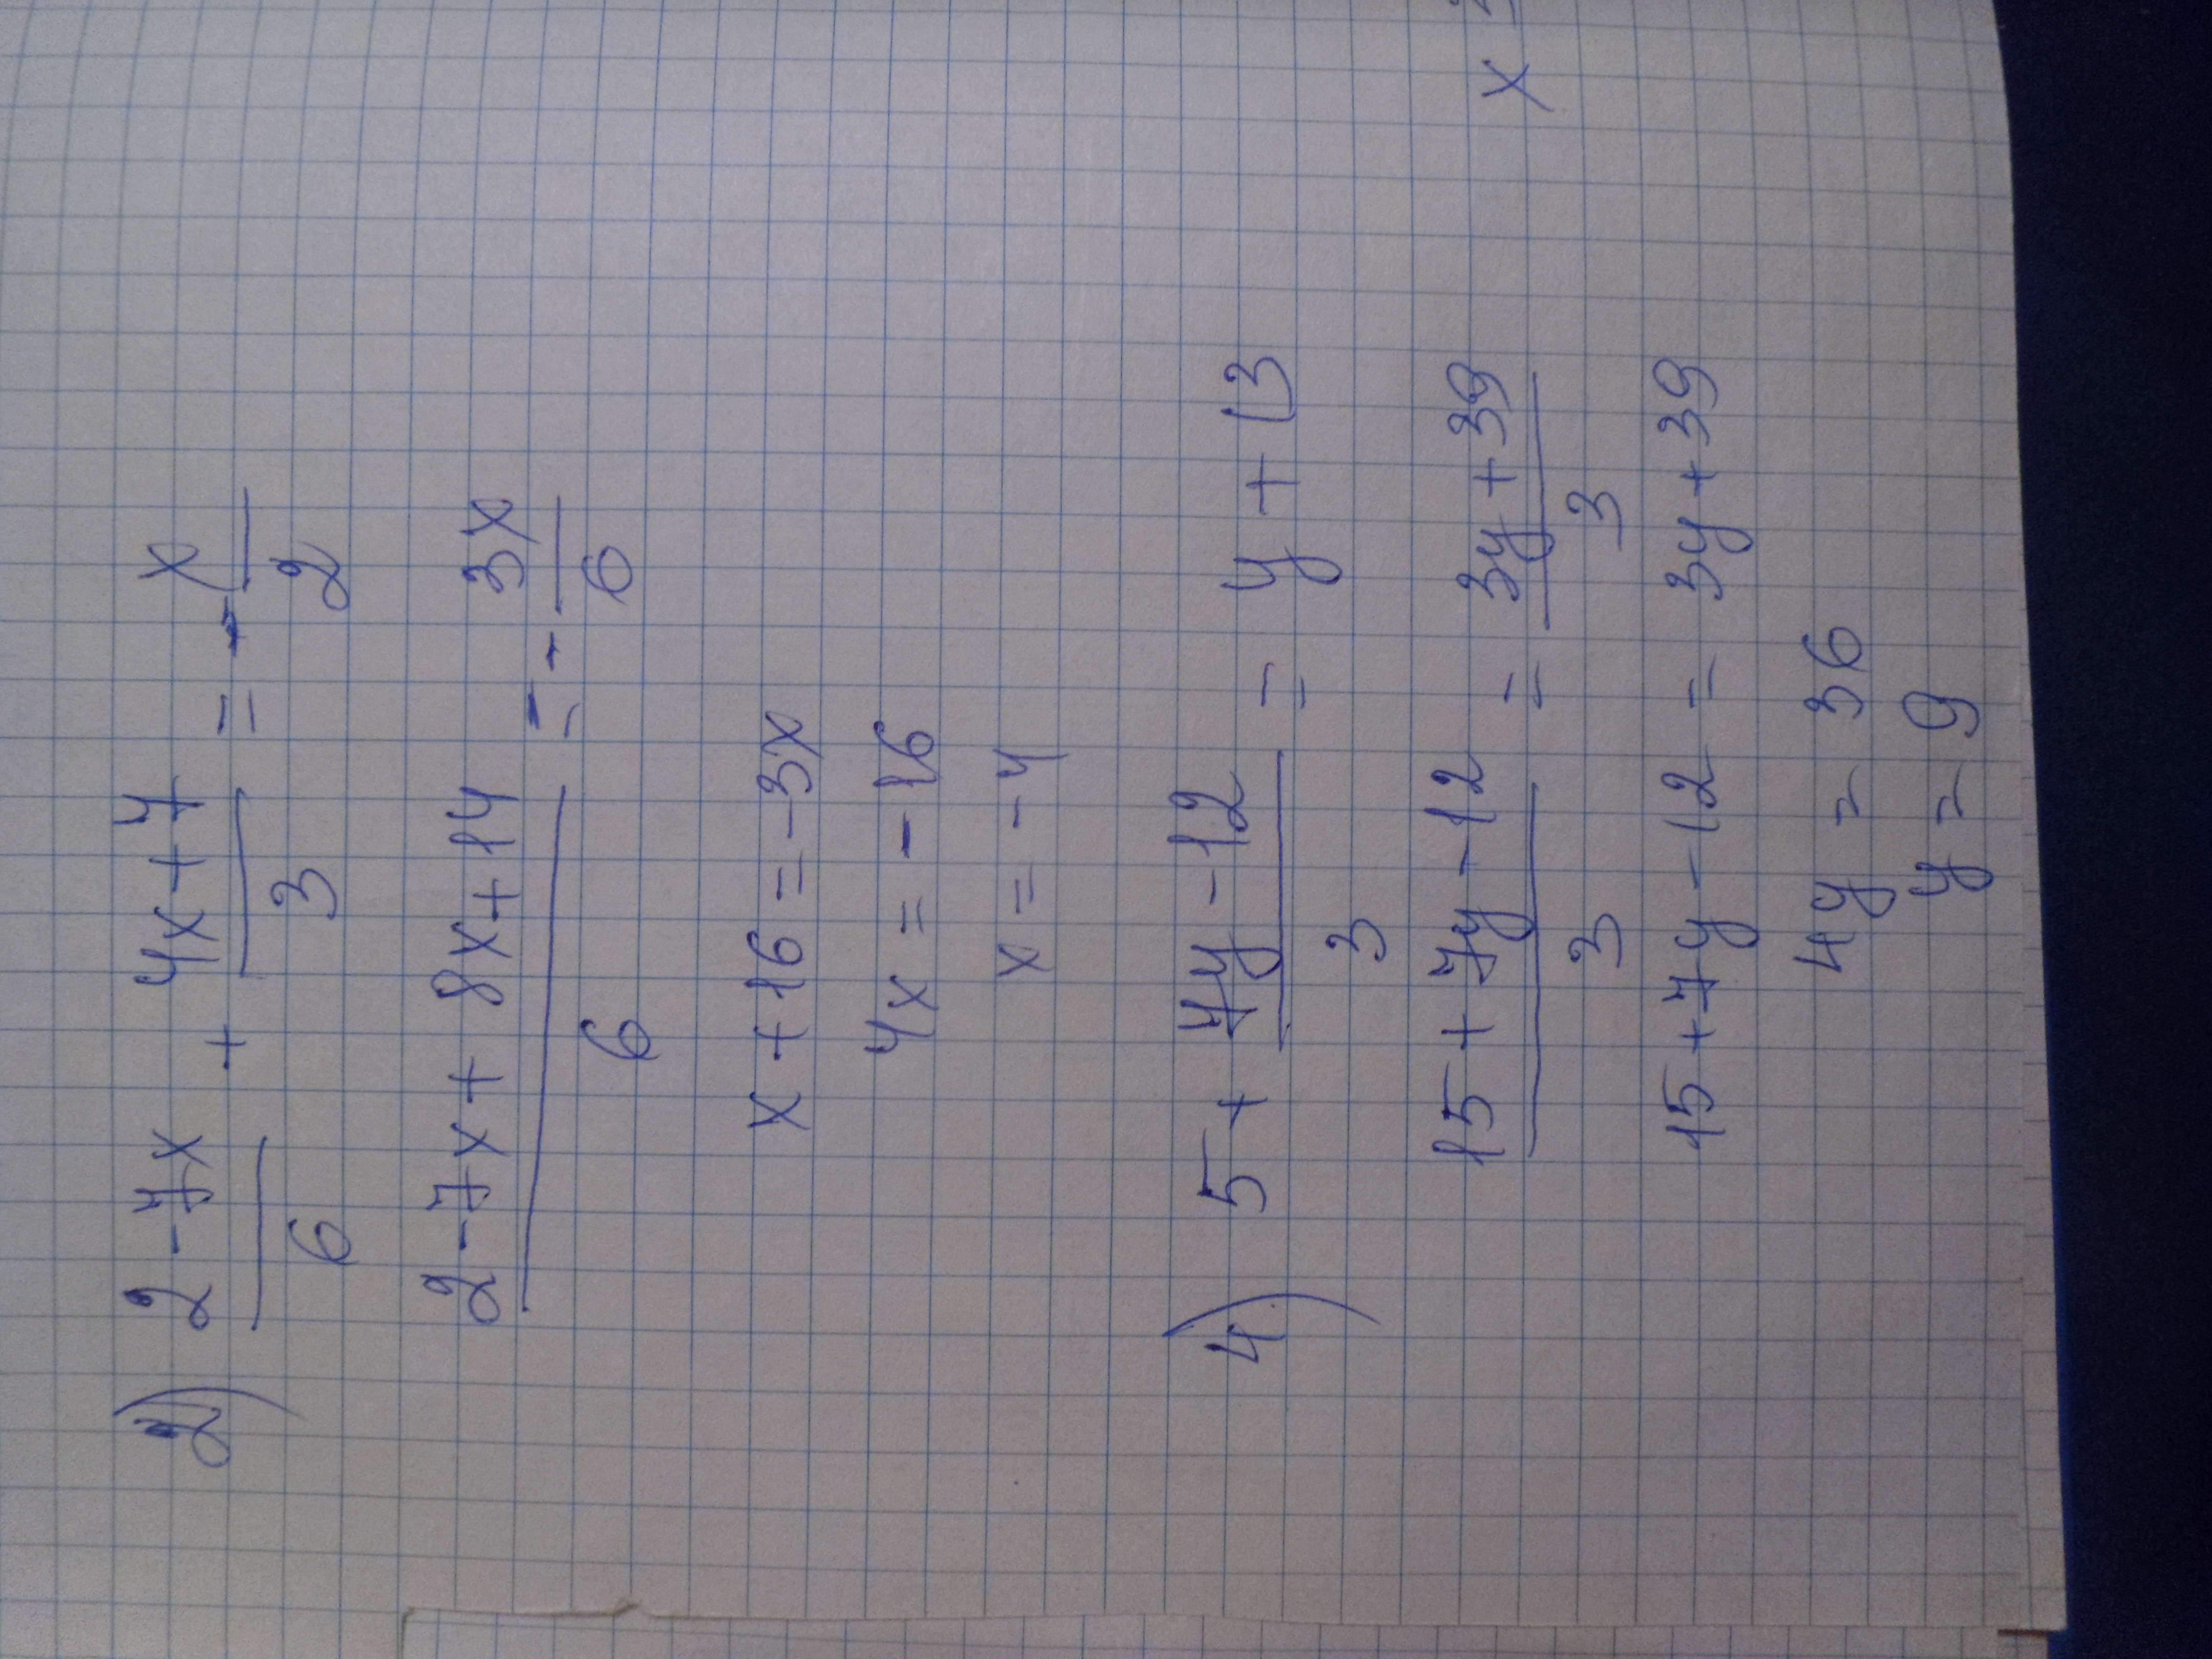 2) (2 - 7x)/6 + (4x + 7)/3 = - x/2
(2 - 7x + 8x + 14)/6 = - 3x/6
x + 16 = -3x
4x = -16
x = -4
4) 5 + (7y - 12)/3 = y + 13
(15 + 7y - 12)/3 = (3y + 39)/3
15 + 7y - 12 = 3y + 39
4y = 36
y = 9
x